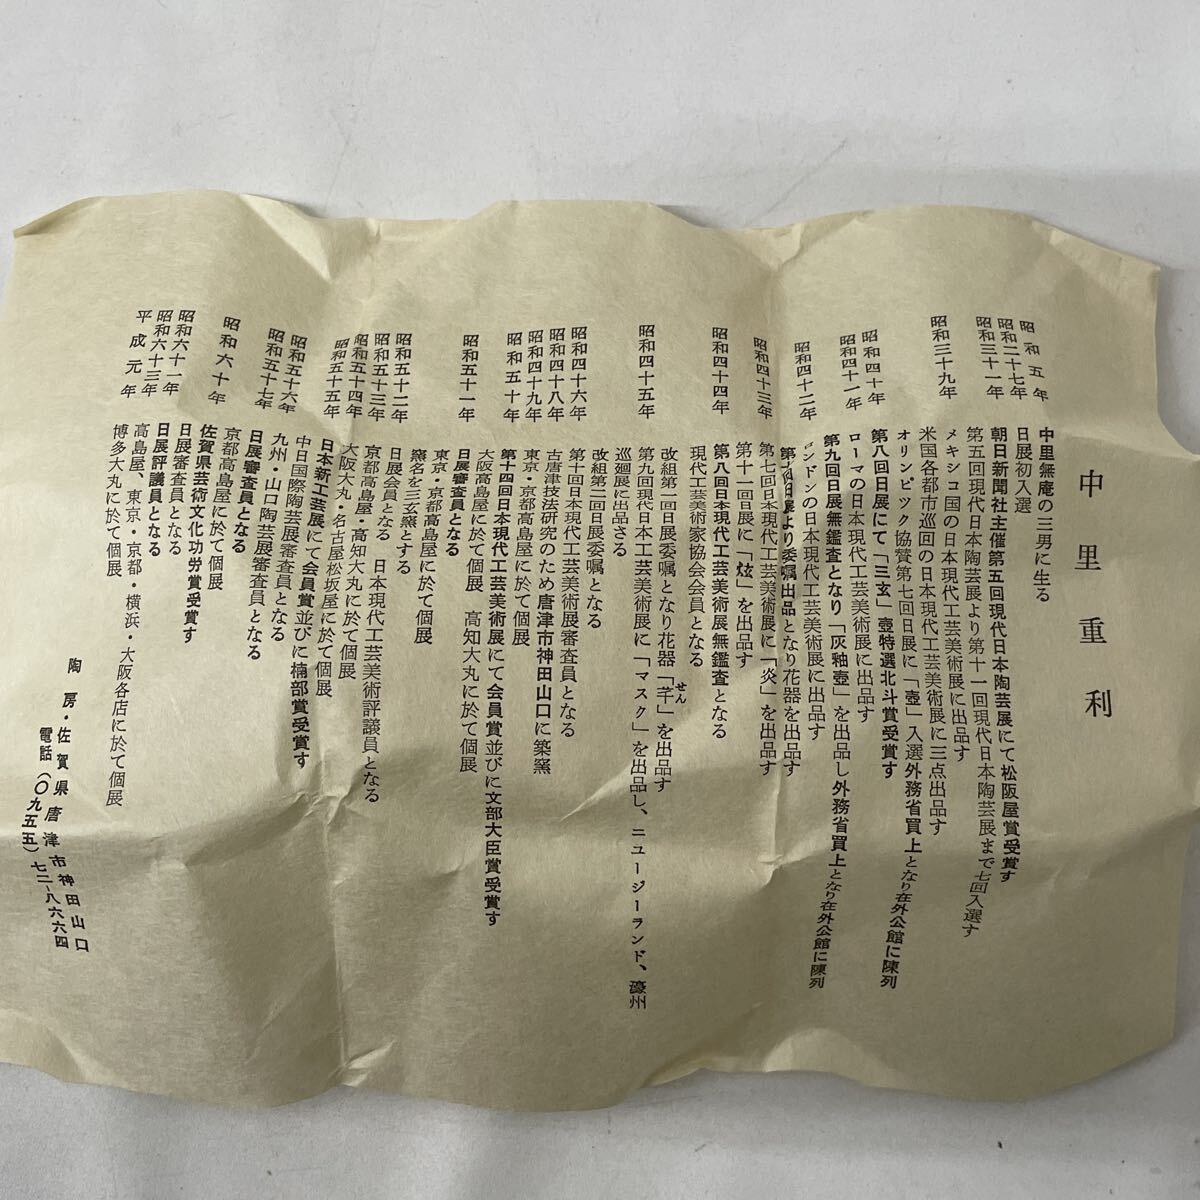 中里重利
昭和五年 中里無庵の三男に生る
昭和二十七年 日展初入選
昭和三十一年 朝日新聞社主催第五回現代日本陶芸展にて松阪屋賞受賞す
第五回現代日本陶芸展より第十一回現代日本陶芸展まで七回入選す
メキシコ国の日本現代工芸美術展に出品す
昭和三十九年 米国各都市巡回の日本現代工芸美術展に三点出品す
オリンピック協賛第七回日展に「壺」入選外務省買上となり在外公館に陳列
昭和四十年 第八回日展にて「三玄」壺特選北斗賞受賞す
昭和四十一年 ローマの日本現代工芸美術展に出品す
第九回日展無鑑査となり「灰釉壺」を出品し外務省買上となり在外公館に陳列
昭和四十二年 ロンドンの日本現代工芸美術展に出品す
第十回日展より委嘱出品となり花器を出品す
昭和四十三年 第七回日本現代工芸美術展に「炎」を出品す
第十一回日展に「炫」を出品す
昭和四十四年 第八回日本現代工芸美術展無鑑査となる
現代工芸美術家協会会員となる
改組第一回日展委嘱となり花器「芉」を出品す
せん
昭和四十五年 第九回現代日本工芸美術展に「マスク」を出品し、ニュージーランド、濠州
巡廻展に出品さる
改組第二回日展委嘱となる
昭和四十六年 第十回日本現代工芸美術展審査員となる
昭和四十八年 古唐津技法研究のため唐津市神田山口に築窯
昭和四十九年 東京・京都高島屋に於て個展
昭和五十年 第十四回日本現代工芸美術展にて会員賞並びに文部大臣賞受賞す
大阪高島屋に於て個展 高知大丸に於て個展
昭和五十一年 日展審査員となる
東京・京都高島屋に於て個展
窯名を三玄窯とする
昭和五十二年 日展会員となる 日本現代工芸美術評議員となる
昭和五十三年 京都高島屋・高知大丸に於て個展
昭和五十四年 大阪大丸・名古屋松坂屋に於て個展
昭和五十五年 日本新工芸展にて会員賞並びに楠部賞受賞す
中日国際陶芸展審査員となる
昭和五十六年 九州・山口陶芸展審査員となる
昭和五十七年 日展審査員となる
京都高島屋に於て個展
昭和六十年 佐賀県芸術文化功労賞受賞す
昭和六十一年 日展審査員となる
昭和六十三年 日展評議員となる
平成元年 高島屋、東京・京都・横浜・大阪各店に於て個展
博多大丸に於て個展
陶房・佐賀県唐津市神田山口
電話(〇九五五)七二-八六六四